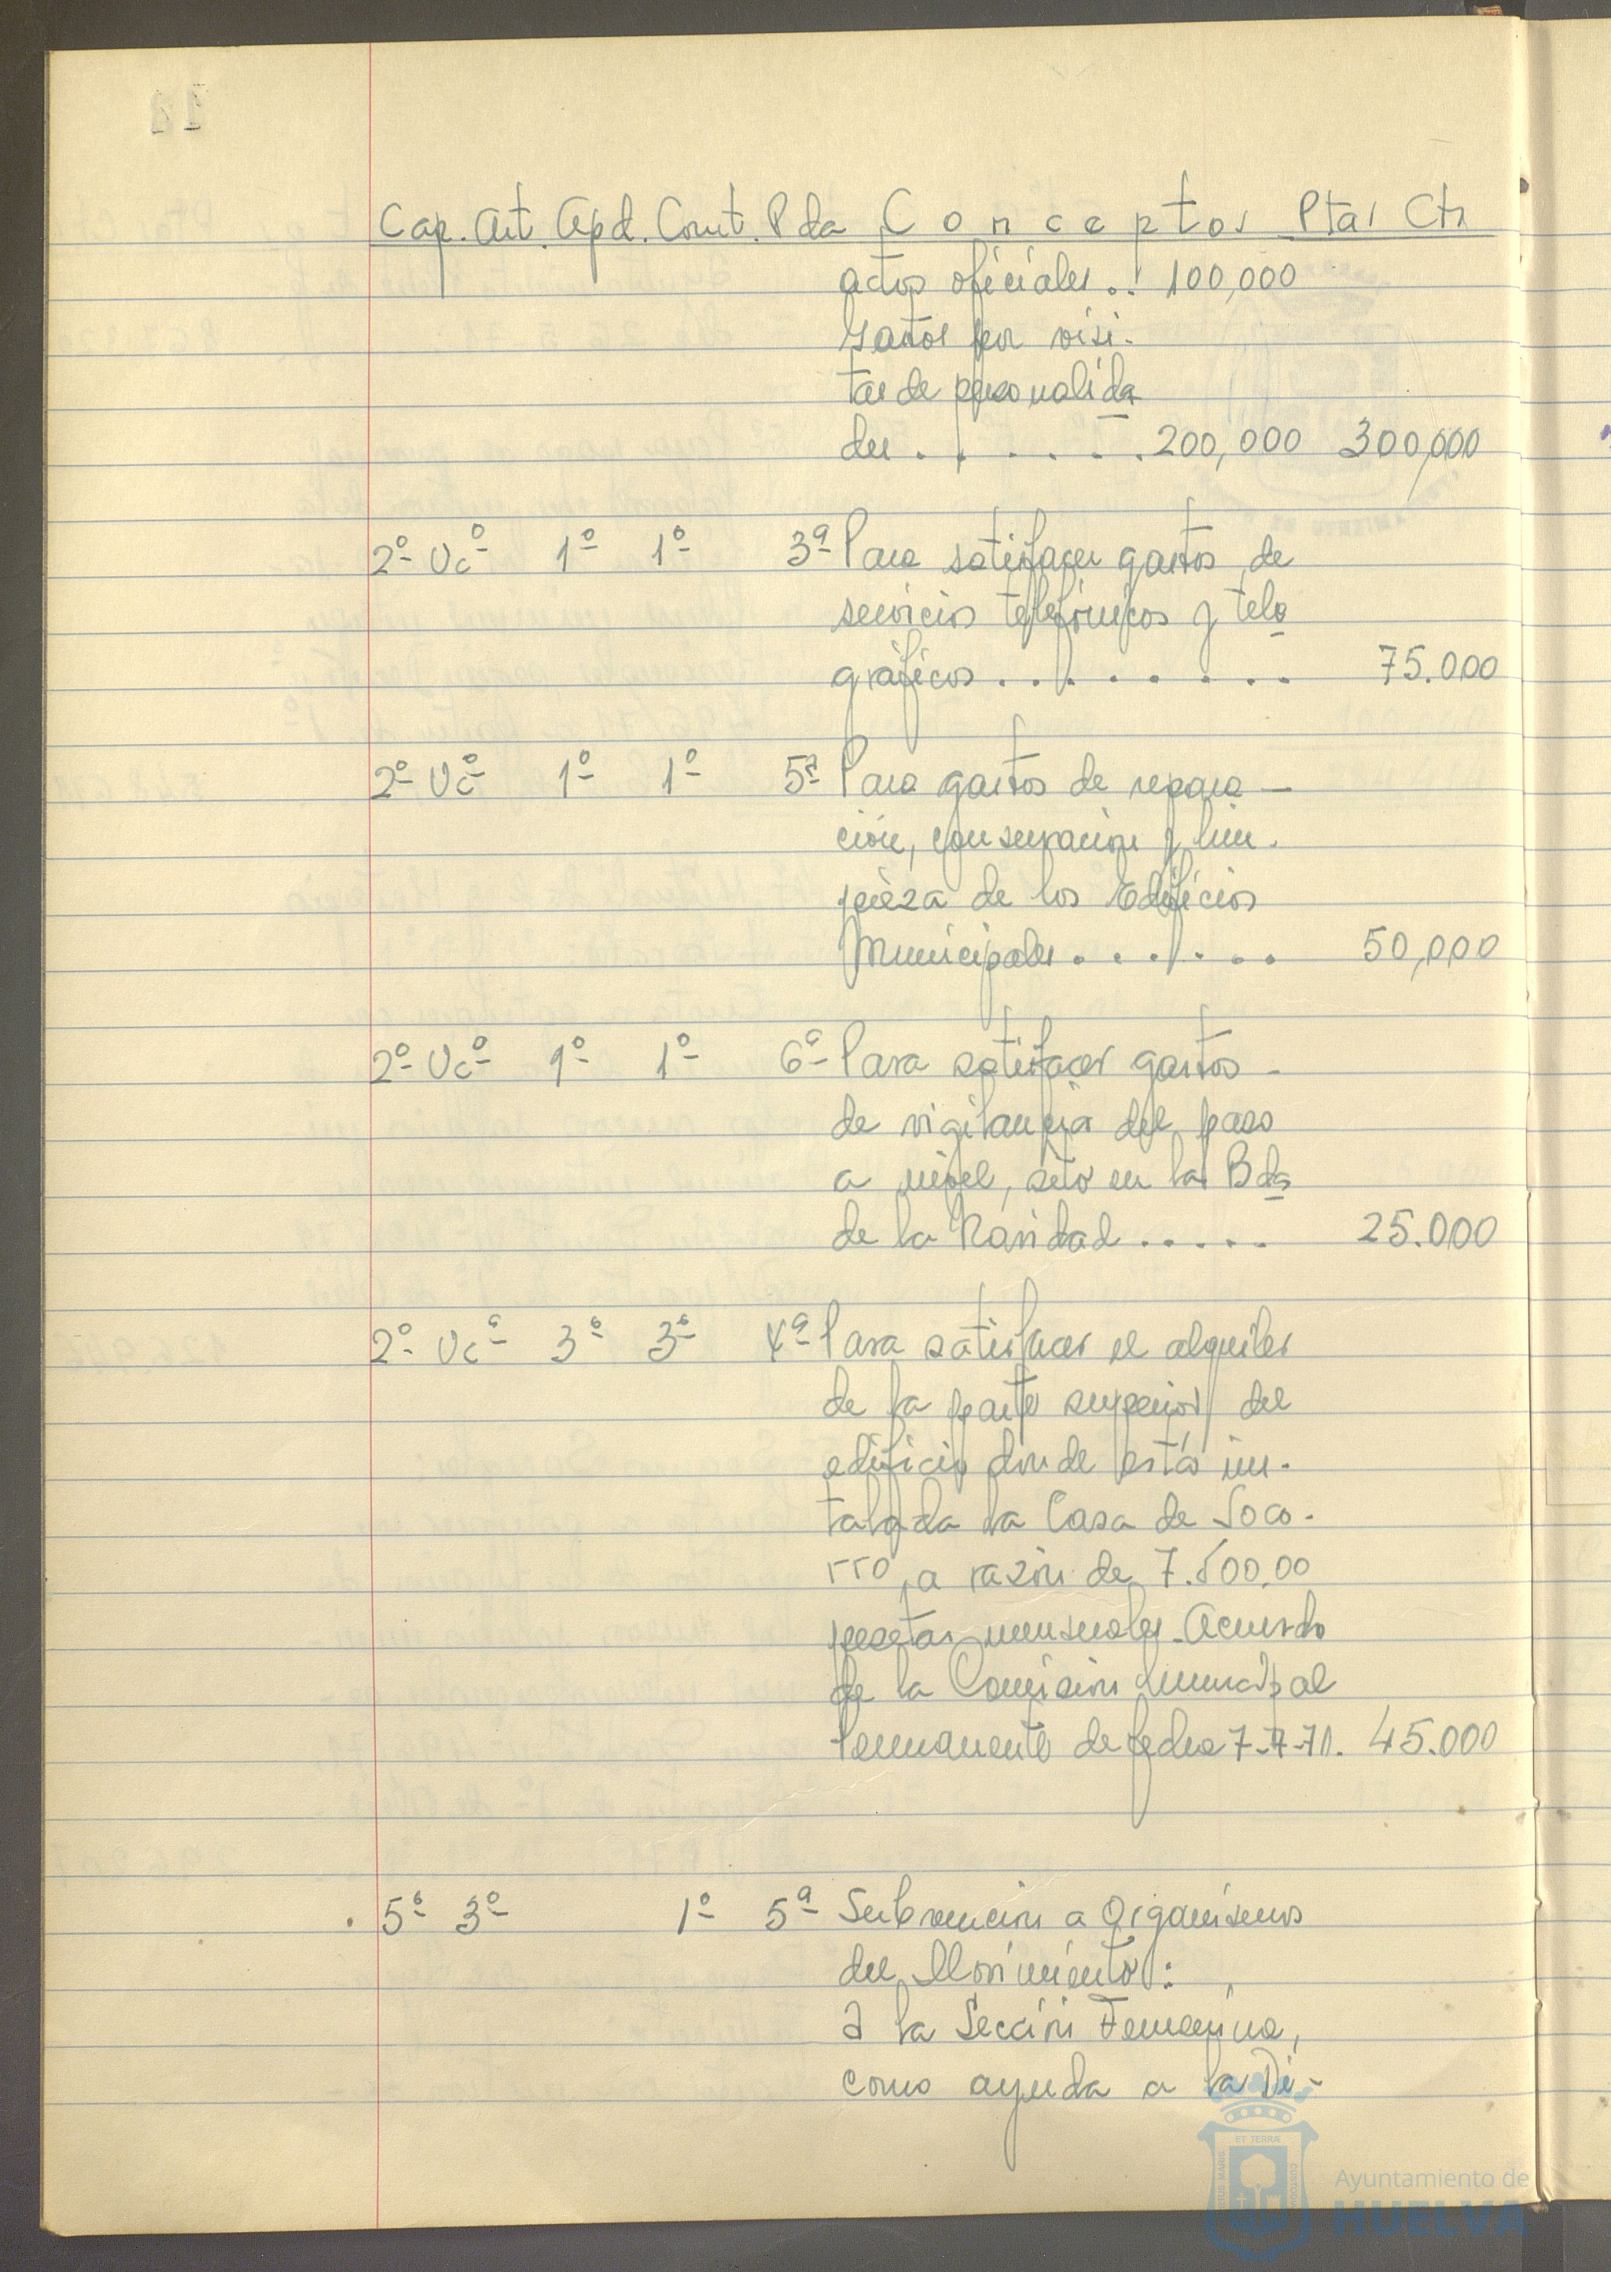 Cap. Art. Apd. Cont. Pda Conceptos Ptas Cts
actos oficiales.. 100,000
Gastos por visi-
tas de personalida
des . . . . . . 200,000 300,000
2º Uc.º 1º 1º 3ª Para satisfacer gastos de
servicios telefónicos y tele
gráficos . . . . . . . . . 75.000
2º Uc.º 1º 1º 5ª Para gastos de repara-
ción, conservación y lim-
pieza de los Edificios
Municipales . . . . . . . 50,000
2º Uc.º 1º 1º 6ª Para satisfacer gastos
de vigilancia del paso
a nivel, sito en la Bda
de la Navidad . . . . . 25.000
2º Uc.º 3º 3º 4ª Para satisfacer el alquiler
de la parte superior del
edificio donde está ins-
talada la Casa de Soco-
rro, a razón de 7.500,00
pesetas mensuales. Acuerdo
de la Comisión Municipal
Permanente de fecha 7-7-71. 45.000
5º 3º 1º 5ª Subvención a Organismos
del Movimiento:
A la Sección Femenina,
como ayuda a la Di-
ET TERRÆ
Ayuntamiento de
HUELVA